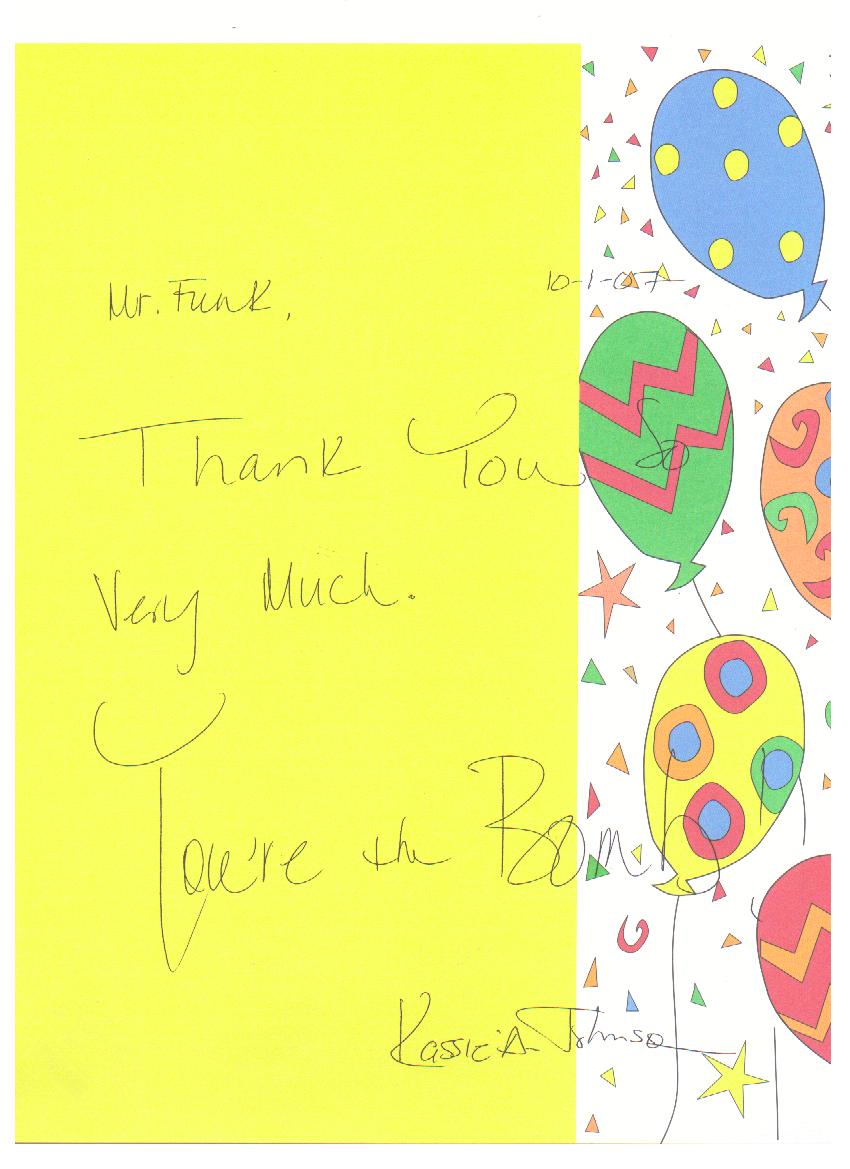 10-1-07
Mr. Funk,
Thank You So
Very Much.
You're the Bomb!
Kassie A Johnson